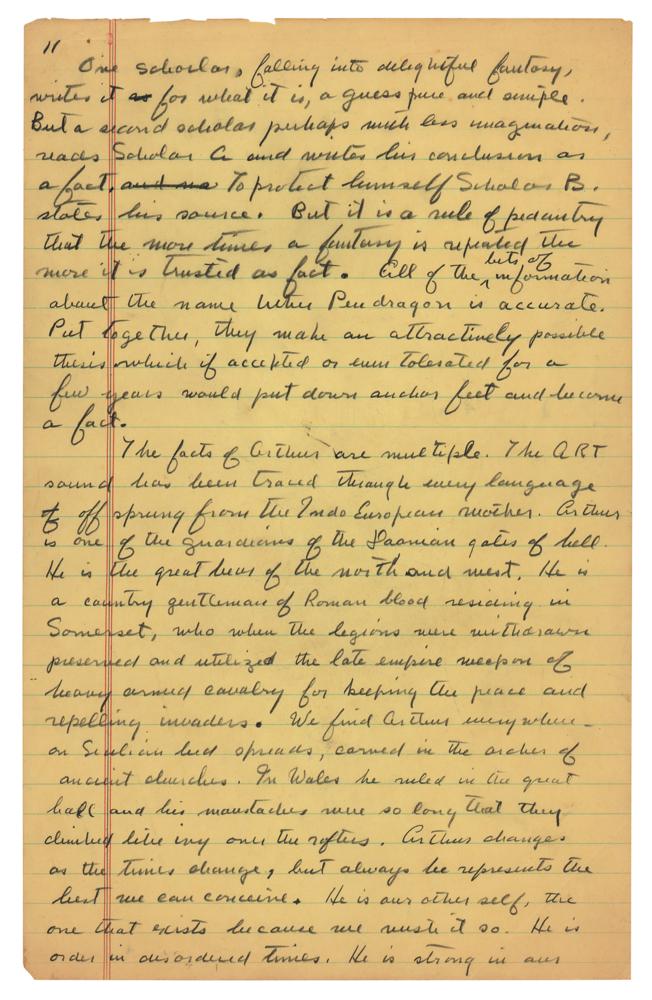 11
One scholar, falling into delightful fantasy,
writes it as for what it is, a guess pure and simple.
But a second scholar perhaps with less imagination,
reads Scholar A and writes his conclusion as
a fact, and so To protect himself Scholar B.
states his source. But it is a rule of pedantry
that the more times a fantasy is repeated the
more it is trusted as fact. All of the bits of information
about the name Uther Pendragon is accurate.
Put together, they make an attractively possible
thesis which if accepted or even tolerated for a
few years would put down anchor feet and become
a fact.
The facts of Arthur are multiple. The ART
sound has been traced through every language
of off sprung from the Indo European mother. Arthur
is one of the guardians of the gates of hell.
He is the great bear of the north and west. He is
a country gentleman of Roman blood residing in
Somerset, who when the legions were withdrawn
preserved and utilized the late empire weapon of
heavy armed cavalry for keeping the peace and
repelling invaders. We find Arthur everywhere -
on Sicilian bed spreads, carved in the arches of
ancient churches. In Wales he ruled in the great
hall and his moustaches were so long that they
climbed like ivy over the rafters. Arthur changes
as the times change, but always he represents the
best we can conceive. He is our other self, the
one that exists because we wish it so. He is
order in disordered times. He is strong in our